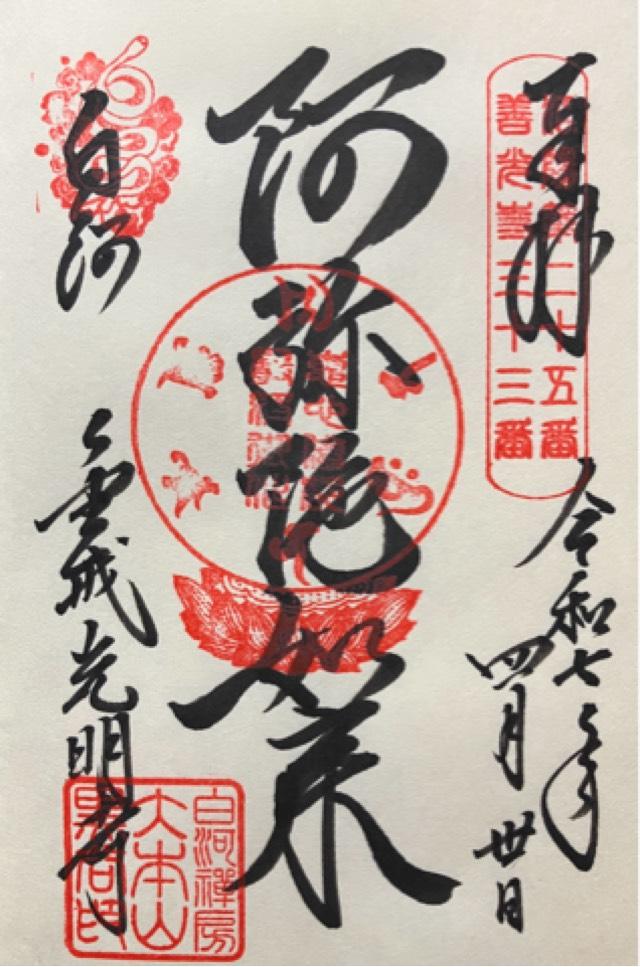 奉拝
二十五番
善光寺三十三番
令和七年
四月丗日
阿弥陀如来
白河
金戒光明寺
白河禪房
大本山